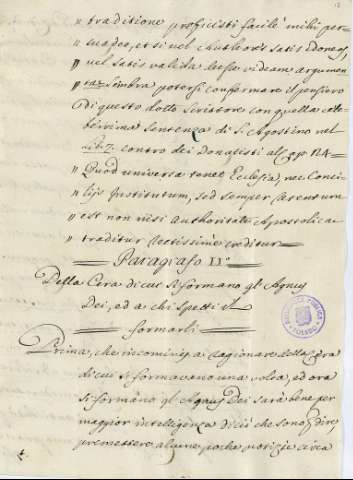 " traditione proficisti facile mihi per=
" suadeo, et si vel Authores satis idoneos,
" vel satis valida esse videam argumen
" ta; sembra potersi conformare il pensiero
di questo dotto Scrittore con quella cele
berrima sentenza di S. Agostino nel
Lib. 7. contro dei Donatisti al Capo 24.
" Quod universa tenet Ecclesia, nec Conci
" lijs institutum, sed semper retentum
" est non nisi Authoritate Apostolica
" traditur rectissime creditur
Paragrafo II.º
Della Cera di cui si formano gl'Agnus
Dei, ed a chi spetti il
formarli
Prima, che incominci a ragionare della Cera
di cui si formavano una volta, ed ora
si formano gl'Agnus Dei sarà bene per
maggior intelligenza di ciò che sono per dire,
premettere alcune poche notizie circa